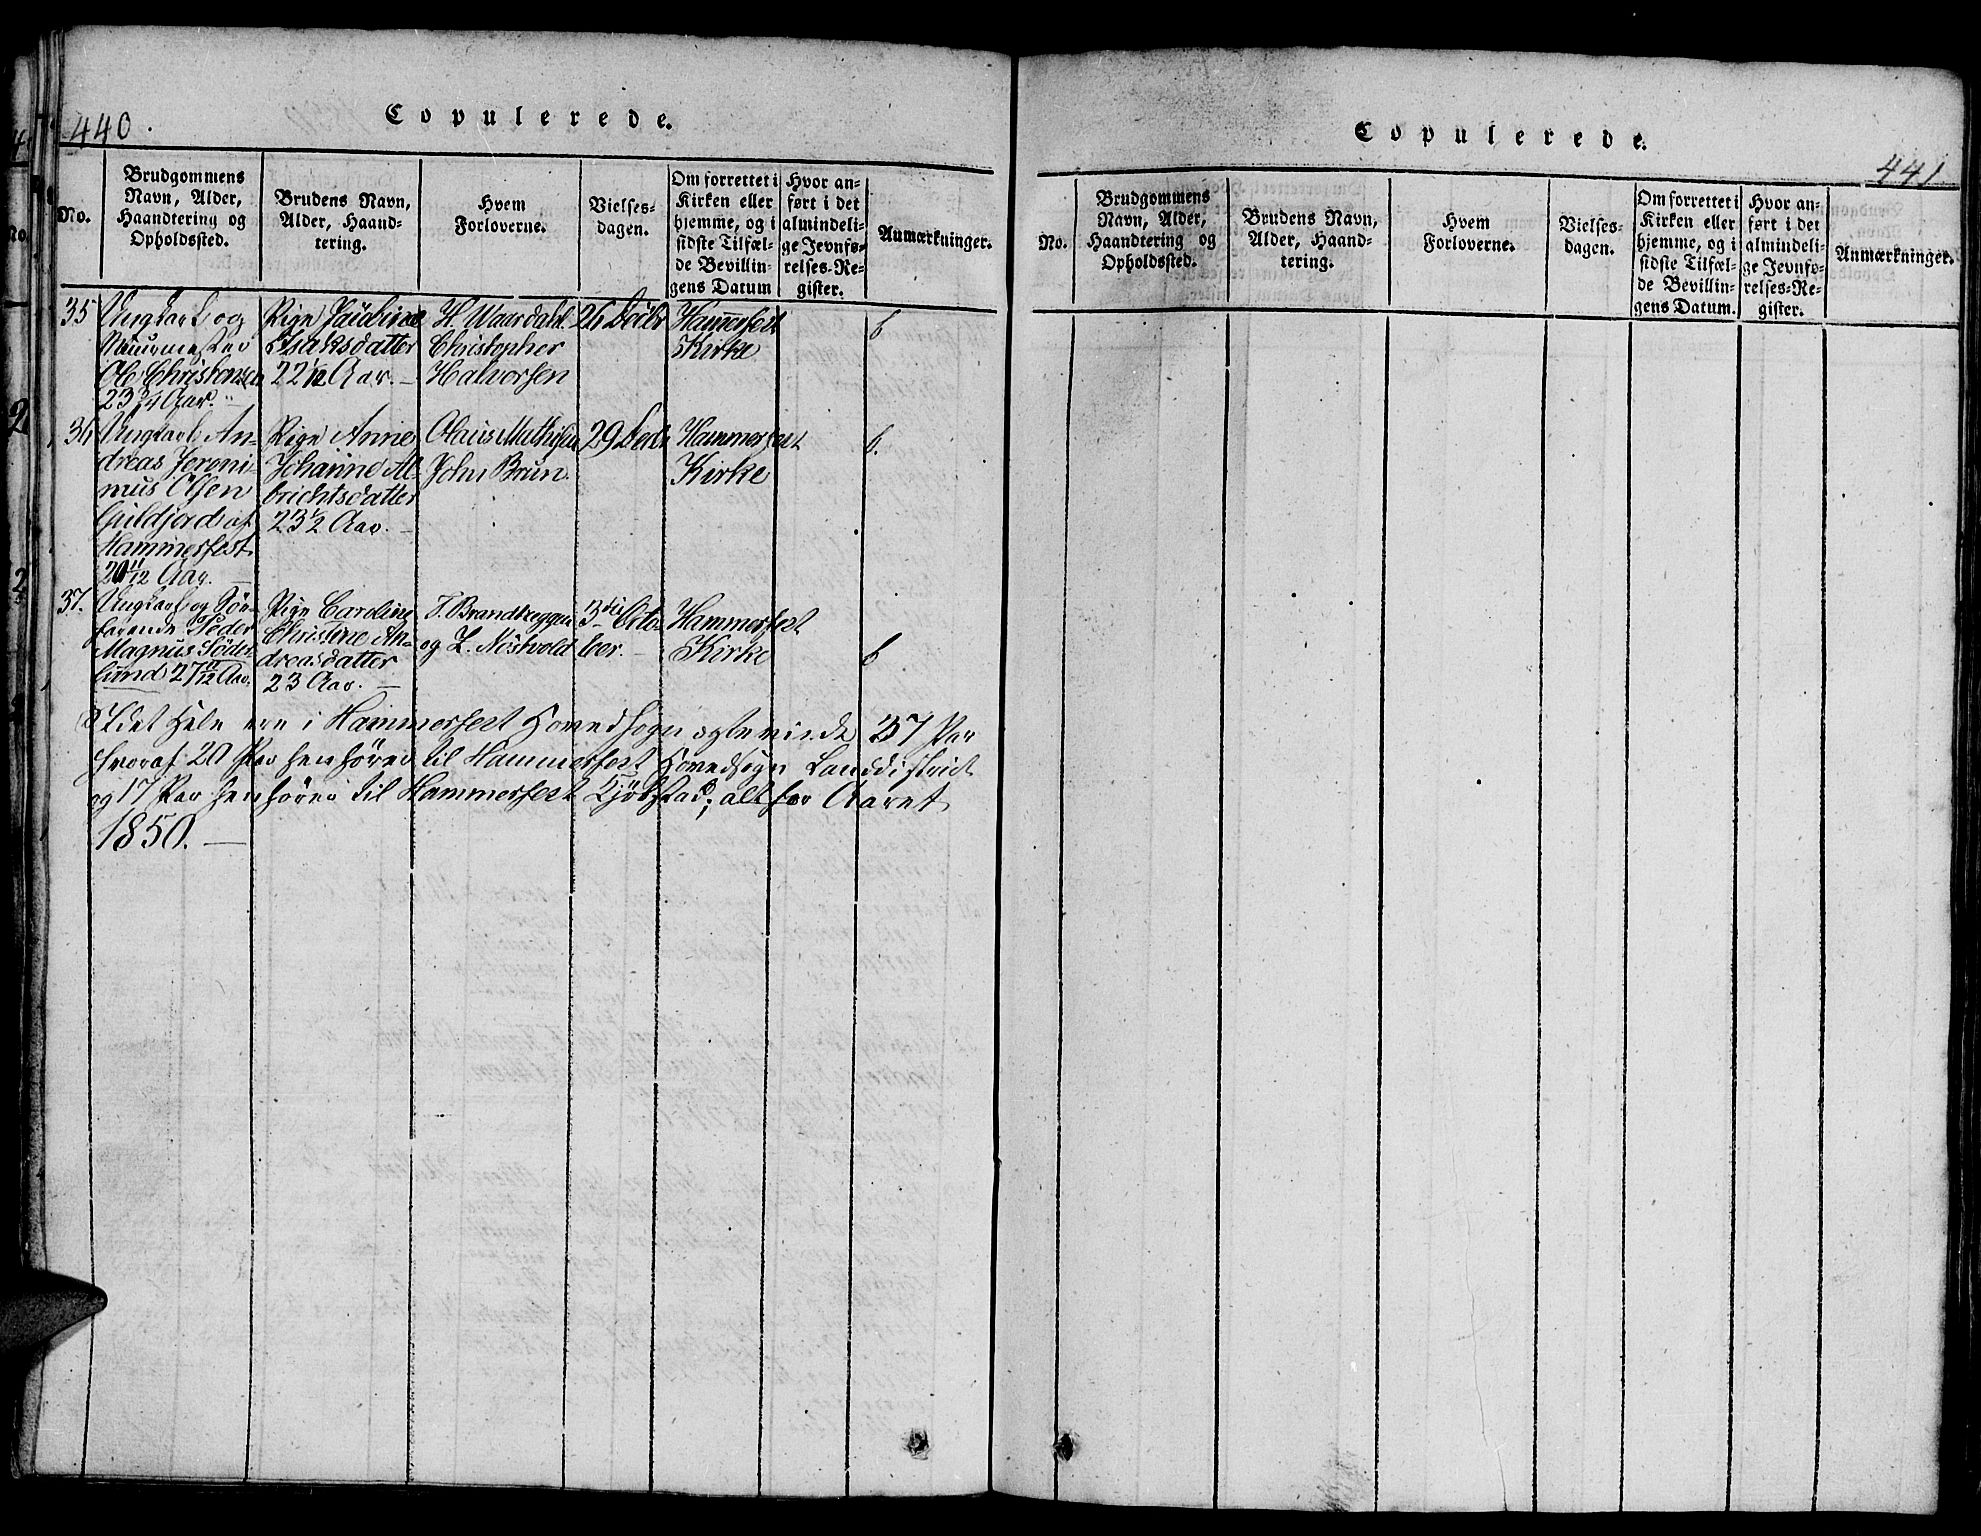 440.
Copulerede.
No.
Brudgommens
Navn, Alder,
Haandtering og
Opholdssted.
Brudens Navn,
Alder, Haand-
tering.
Hvem
Forloverne.
Vielses-
dagen.
Om forrettet i
Kirken eller
hjemme, og i
sidste Tilfæl-
de Bevillin-
gens Datum
Hvor an-
ført i det
almindeli-
ge Jevnfø-
relses-Re-
gister.
Anmærkninger.
35
Ungkarl og
Muurmester
Ole Christensen
23 3/4 Aar.
Pige Pauline
Isaksdatter
22 1/2 Aar. —
H. Waardahl
Christopher
Halvorsen
26 Decbr
Hammerfest
Kirke
6
36
Ungkarl An-
dreas Jeroni-
mus Olsen
Guldjord af
Hammerfest
20 11/12 Aar. —
Pige Anne
Johanne Al-
brichtsdatter
23 1/2 Aar. —
Olaus Mathisen
John Brun.
29 Decbr
Hammerfest
Kirke
6.
37.
Ungkarl og Søe-
farende Peder
Magnus Söder
lund 27 11/12 Aar.
Pige Caroline
Christine An-
dreasdatter
23 Aar. —
T. Brandeggen
og L. Nöstvold
3die Octo-
ber. —
Hammerfest
Kirke
6
I det Hele ere i Hammerfest Hovedsogn ægteviede 37 Par
hvoraf 20 Par henhører til Hammerfest Hovedsogn Landdistrict
og 17 Par henhører til Hammerfest Kjøbstad; alt for Aaret
1850. —
Copulerede.
441
No.
Brudgommens
Navn, Alder,
Haandtering og
Opholdssted.
Brudens Navn,
Alder, Haand-
tering.
Hvem
Forloverne.
Vielses-
dagen.
Om forrettet i
Kirken eller
hjemme, og i
sidste Tilfæl-
de Bevillin-
gens Datum.
Hvor an-
ført i det
almindeli-
ge Jevnfø-
relses-Re-
gister.
Anmærkninger.